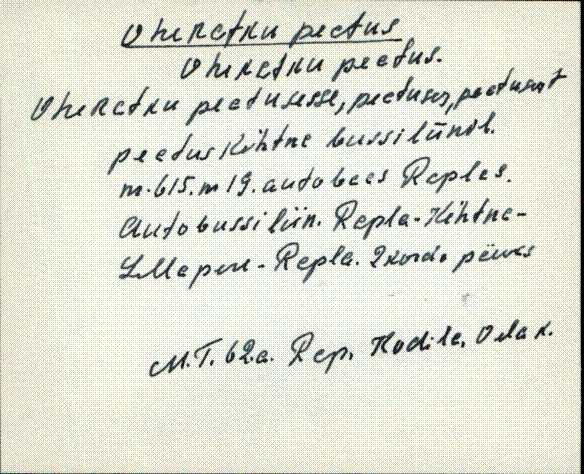 Uheratku peatus
Uheratku peatus.
Uheratku peatusesse, peatuses, peatusest
peatus Kihtne bussiliinil.
m. 615. m 19. autobees Raplas.
Autobussiliin. Rapla-Kihtne-
Rapla. 2 korda päevas
M.T. 62a. Rap, Kodila,